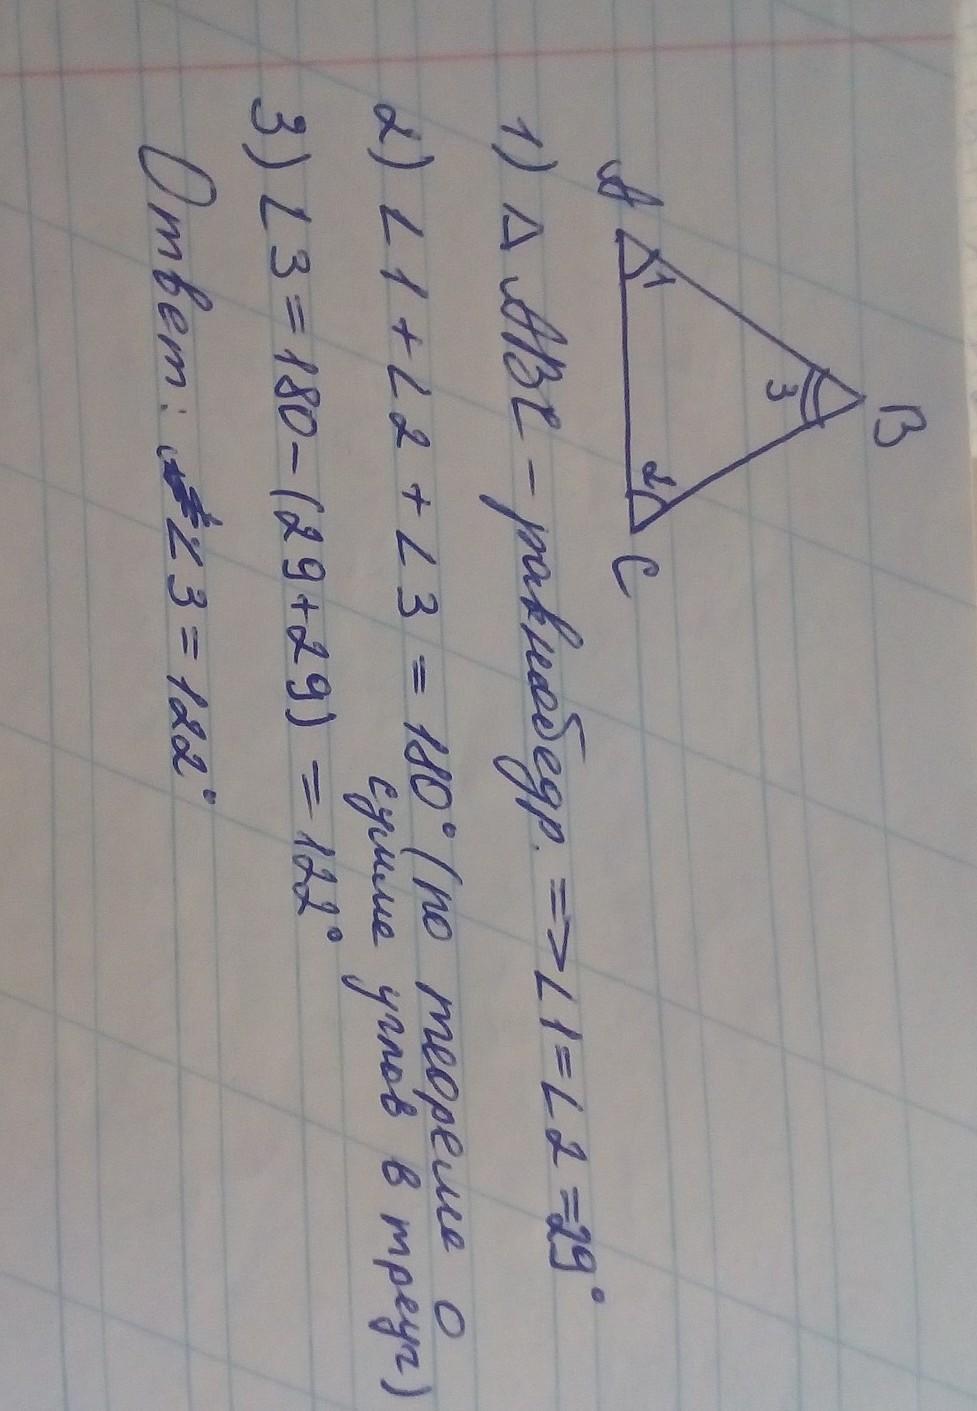 B
3
A 1 2 C
1) △ABC - равнобедр. => ∠1=∠2=29°
2) ∠1+∠2+∠3=180° (по теореме о
сумме углов в треуг)
3) ∠3=180-(29+29)=122°
Ответ: ∠3=122°